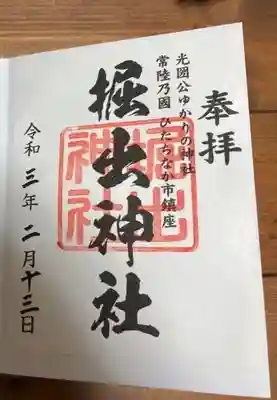 奉拝
光圀公ゆかりの神社
常陸乃國ひたちなか市鎮座
掘出神社
掘出神社
令和三年二月十三日